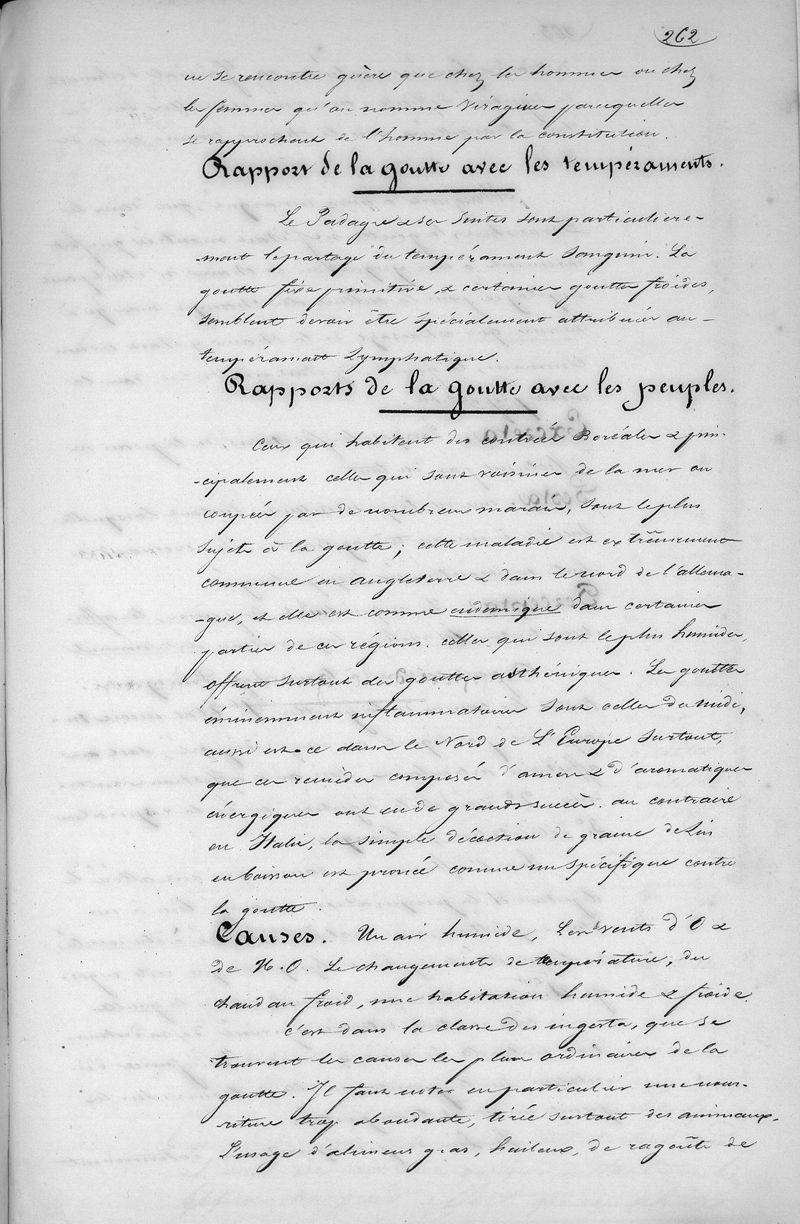 262
ne se rencontre guère que chez les hommes ou chez
les femmes qu'on nomme viragines parcequelles
se rapprochent de l'homme par la constitution.
Rapport de la goutte avec les tempéraments.
Le Podagre & ses suites sont particuliere-
-ment le partage du tempérament sanguin. La
goutte fixe primitive, & certaines gouttes froides,
semblent devoir être spécialement attribuées au
tempérament Lymphatique.
Rapports de la goutte avec les peuples.
Ceux qui habitent des contrées Boréales & prin-
-cipalement celles qui sont voisines de la mer ou
coupées par de nombreux marais, sont le plus
sujets à la goutte; cette maladie est extrêmement
commune en angleterre & dans le nord de l'allema-
-gne, et elle est comme endémique dans certaines
parties de ces régions. celles qui sont le plus humides,
offrent surtout des gouttes asthéniques. Les gouttes
éminemment inflammatoires sont celles du midi,
aussi est-ce dans le Nord de L'Europe surtout,
que ces remèdes composés d'amers & d'aromatiques
énergiques ont eu de grands succès. au contraire
en Italie, la simple décoction de graine de Lin
en boisson est pronée comme un spécifique contre
la goutte.
Causes. Un air humide, Les vents d'O &
de N.O. Le changements de température, du
chaud au froid, une habitation humide & froide.
c'est dans la classe des ingesta, que se
trouvent les causes les plus ordinaires de la
goutte. Il faut noter en particulier une nour-
riture trop abondante, tirée surtout des animaux.
L'usage d'alimens gras, huileux, de ragoûts de